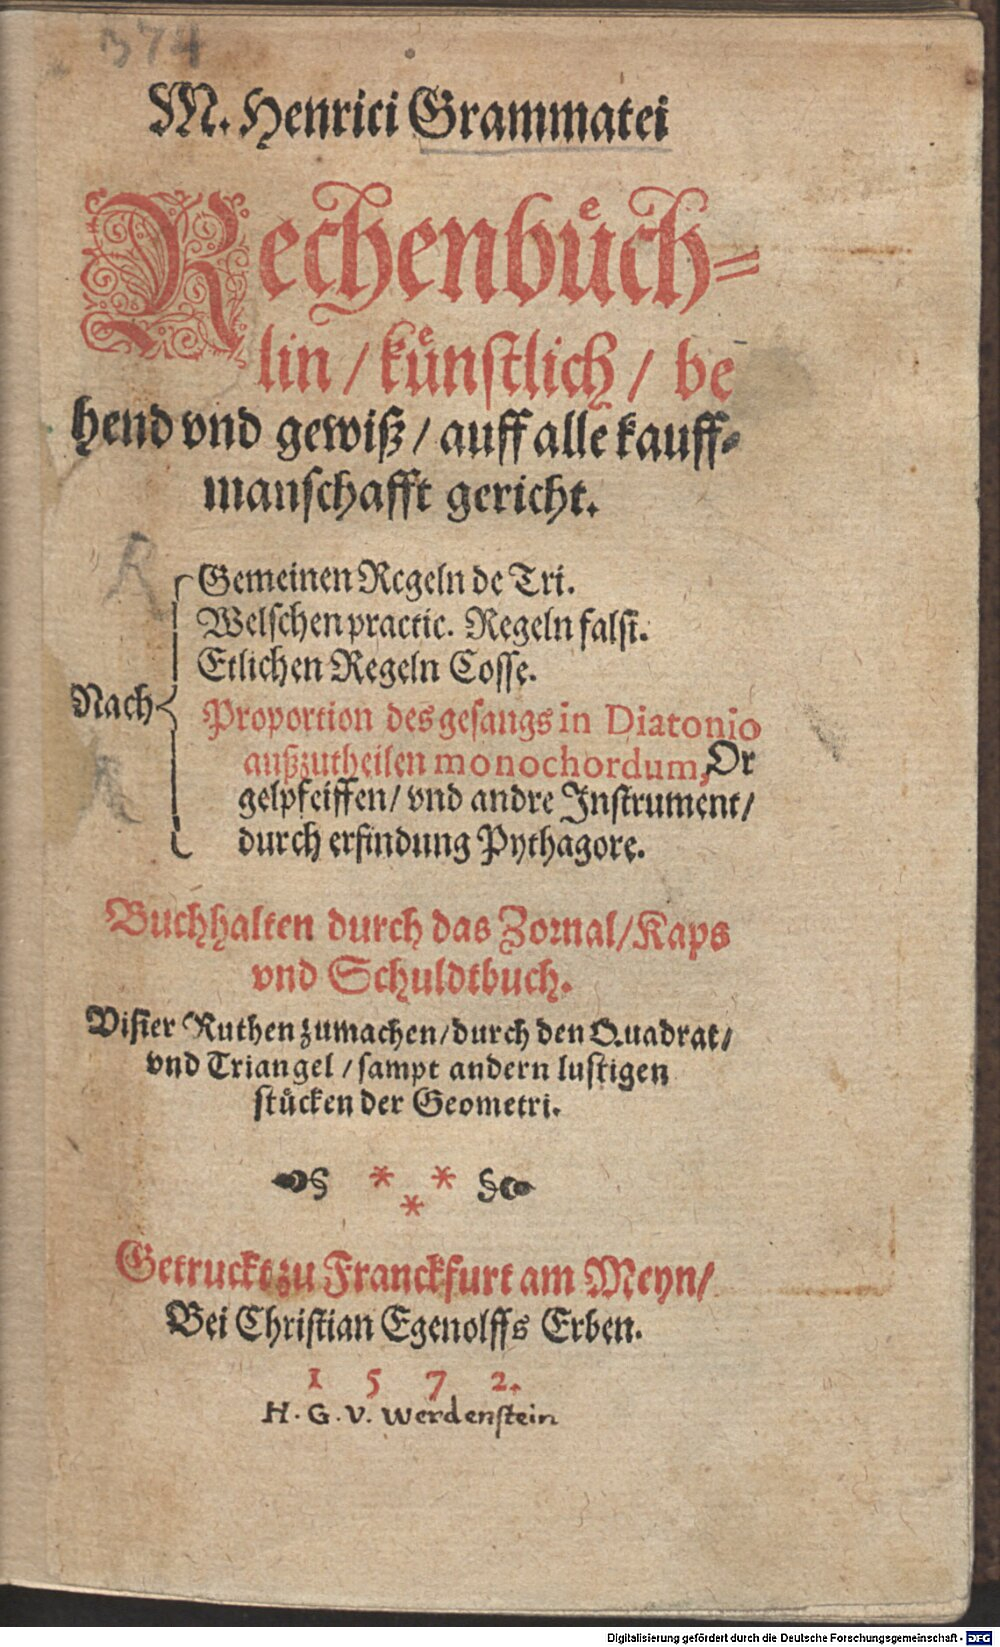 374
M. Henrici Grammatei
Rechenbuͤch-
lin / kuͤnſtlich / be
hend vnd gewiß / auff alle kauff-
manſchafft gericht.
R
Gemeinen Regeln de Tri.
Welſchen practic. Regeln falſi.
Etlichen Regeln Coſſe.
Nach
Proportion des geſangs in Diatonio
außzutheilen monochordum, Or
gelpfeiffen / vnd andre Inſtrument /
durch erfindung Pythagore.
Buchhalten durch das Zornal / Kaps
vnd Schuldtbuch.
Viſier Ruthen zumachen / durch den Quadrat /
vnd Triangel / ſampt andern luſtigen
ſtuͤcken der Geometri.
Getruckt zu Franckfurt am Meyn /
Bei Chriſtian Egenolffs Erben.
1 5 7 2.
H. G. V. Werdenſtein
Digitalisierung gefördert durch die Deutsche Forschungsgemeinschaft - DFG